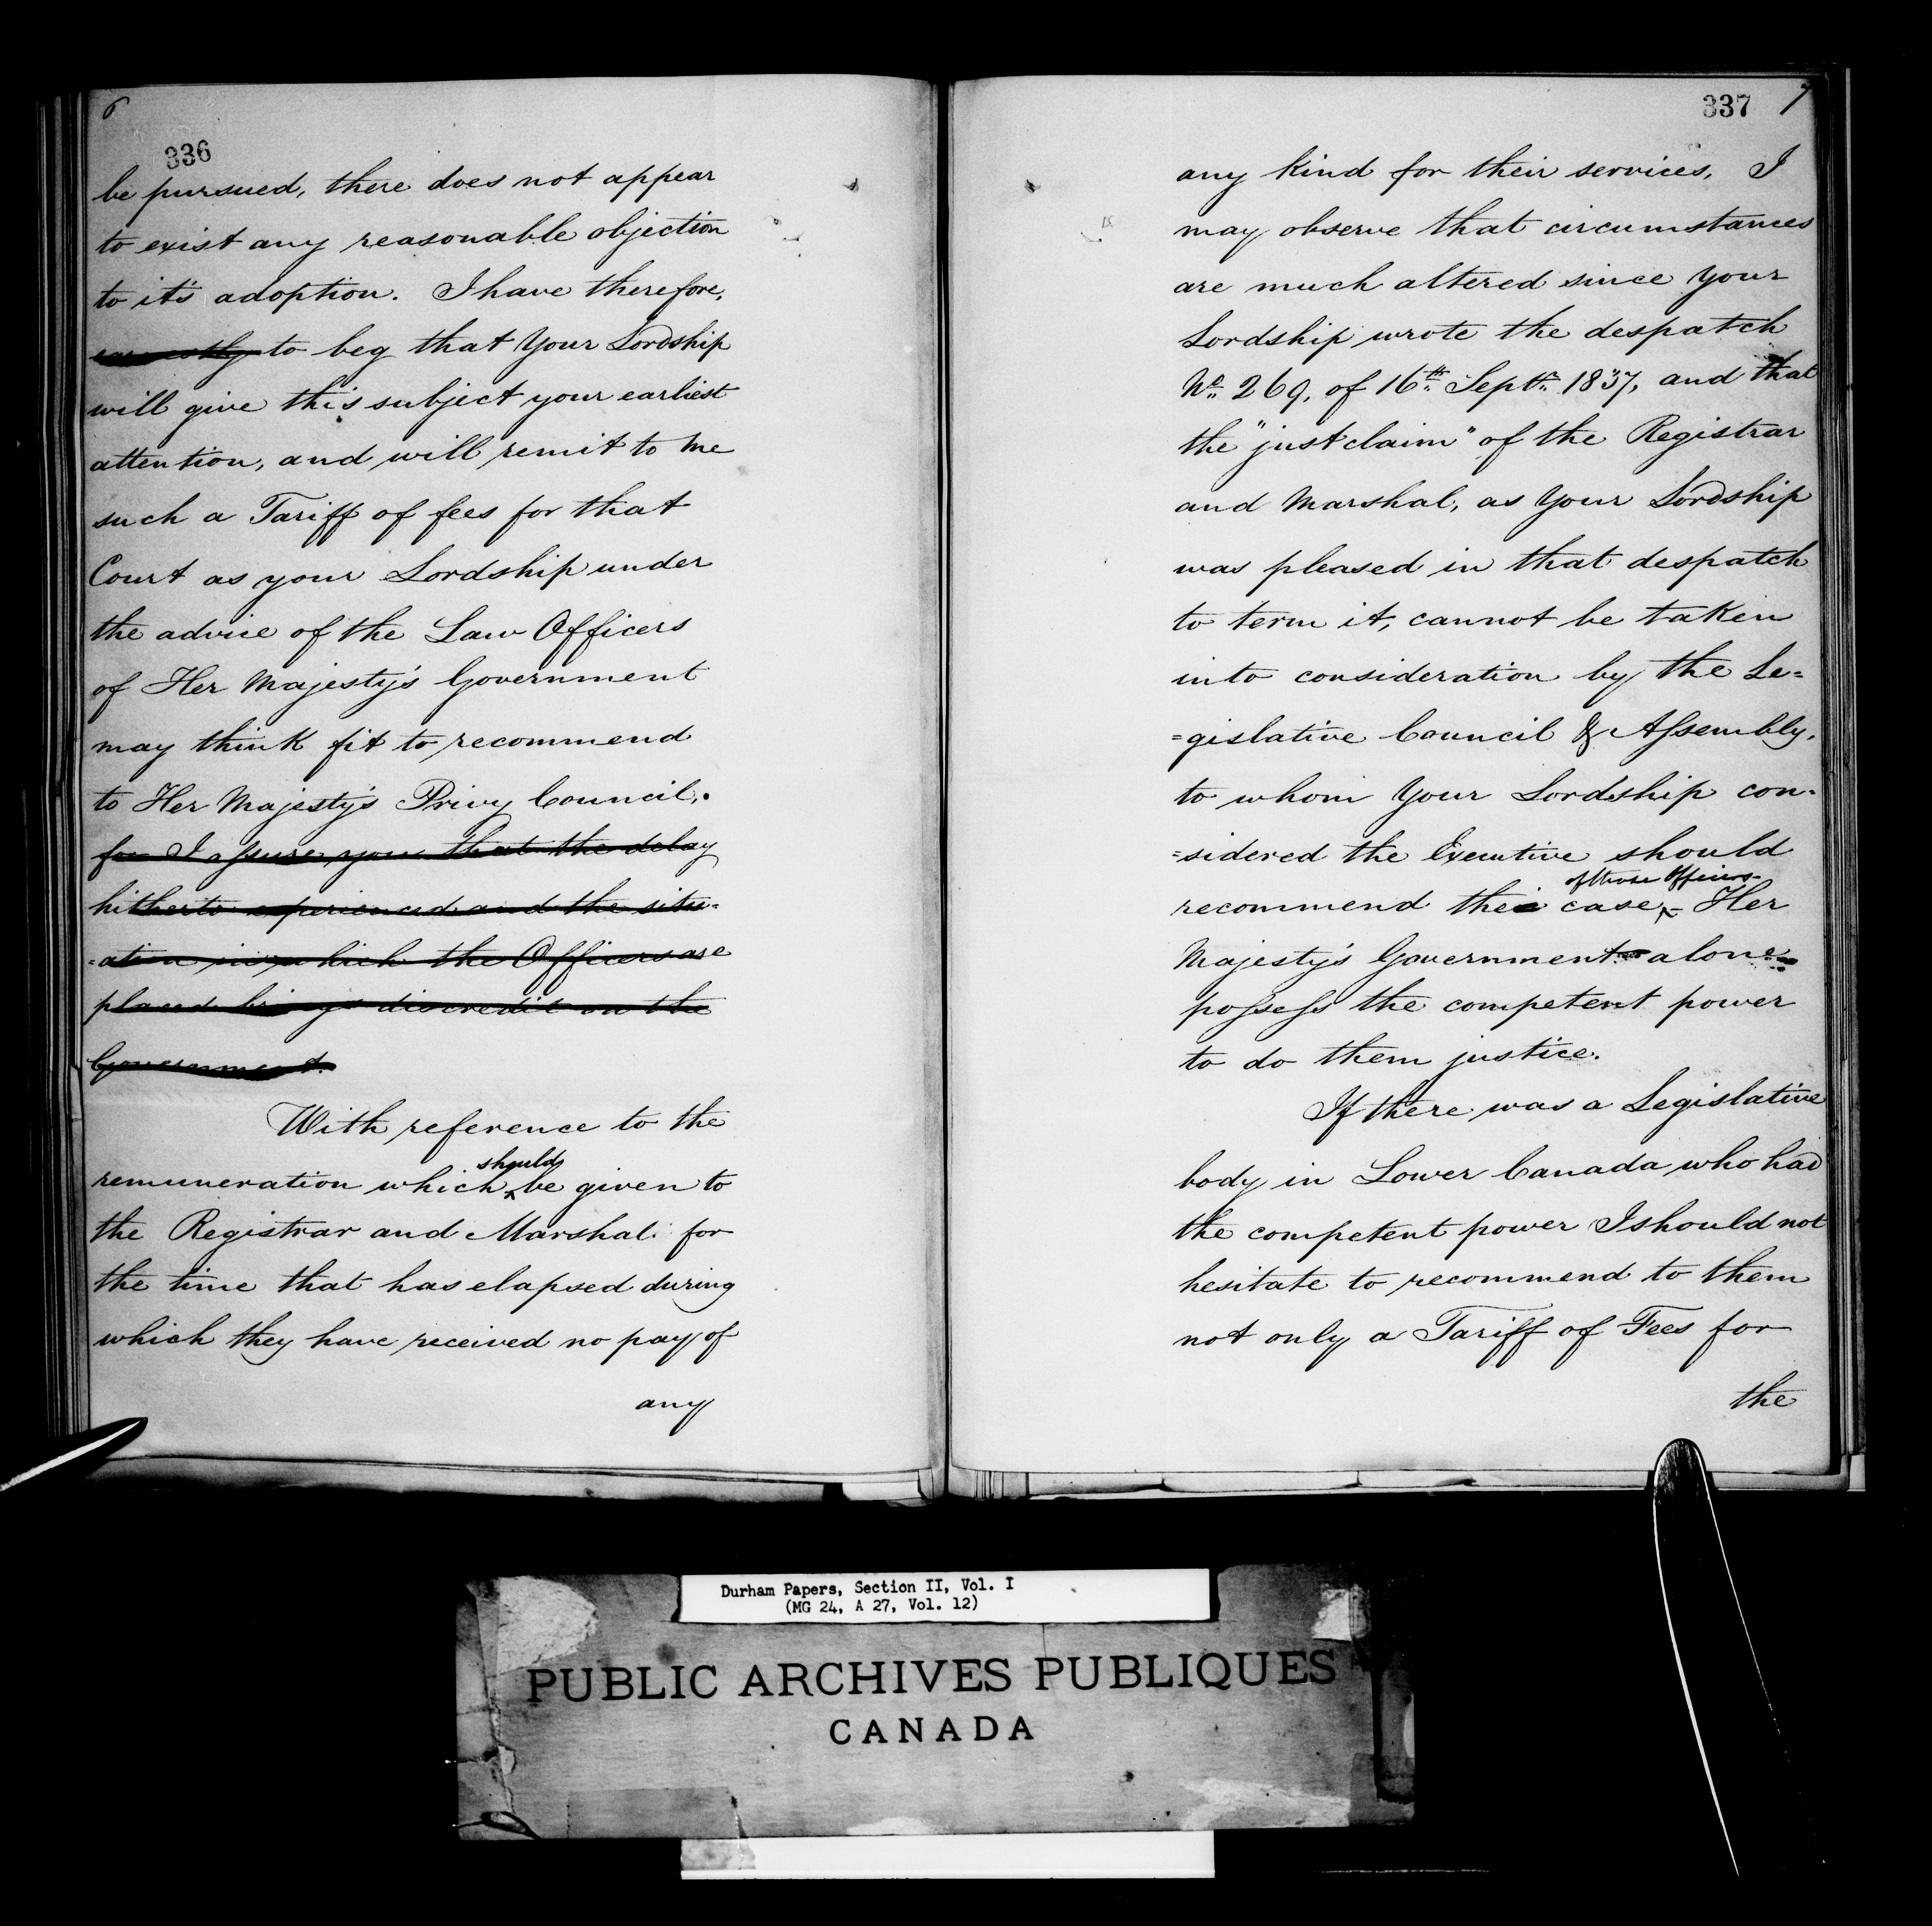 6
336
be pursued, there does not appear
to exist any reasonable objection
to it's adoption. I have therefore,
earnestly to beg that Your Lordship
will give this subject your earliest
attention, and will remit to me
such a Tariff of fees for that
Court as your Lordship under
the advice of the Law Officers
of Her Majesty's Government
may think fit to recommend
to Her Majesty's Privy Council,.
for I assure you that the delay
hitherto experienced and the situ=
=ation in which the Officers are
placed brings discredit on the
Government.
With reference to the
should
remuneration which be given to
the Registrar and Marshal for
the time that has elapsed during
which they have received no pay of
any
337 7
any kind for their services, I
may observe that circumstances
are much altered since Your
Lordship wrote the despatch
No. 269, of 16th Septr. 1837, and that
the "just claim" of the Registrar
and Marshal, as Your Lordship
was pleased in that despatch
to term it, cannot be taken
into consideration by the Le=
=gislative Council & Assembly,
to whom Your Lordship con=
=sidered the Executive should
of those Officers
recommend the case, Her
Majesty's Government alone
possess the competent power
to do them justice.
If there was a Legislative
body in Lower Canada who had
the competent power I should not
hesitate to recommend to them
not only a Tariff of Fees for
the
Durham Papers, Section II, Vol. I
(MG 24, A 27, Vol. 12)
PUBLIC ARCHIVES PUBLIQUES
CANADA